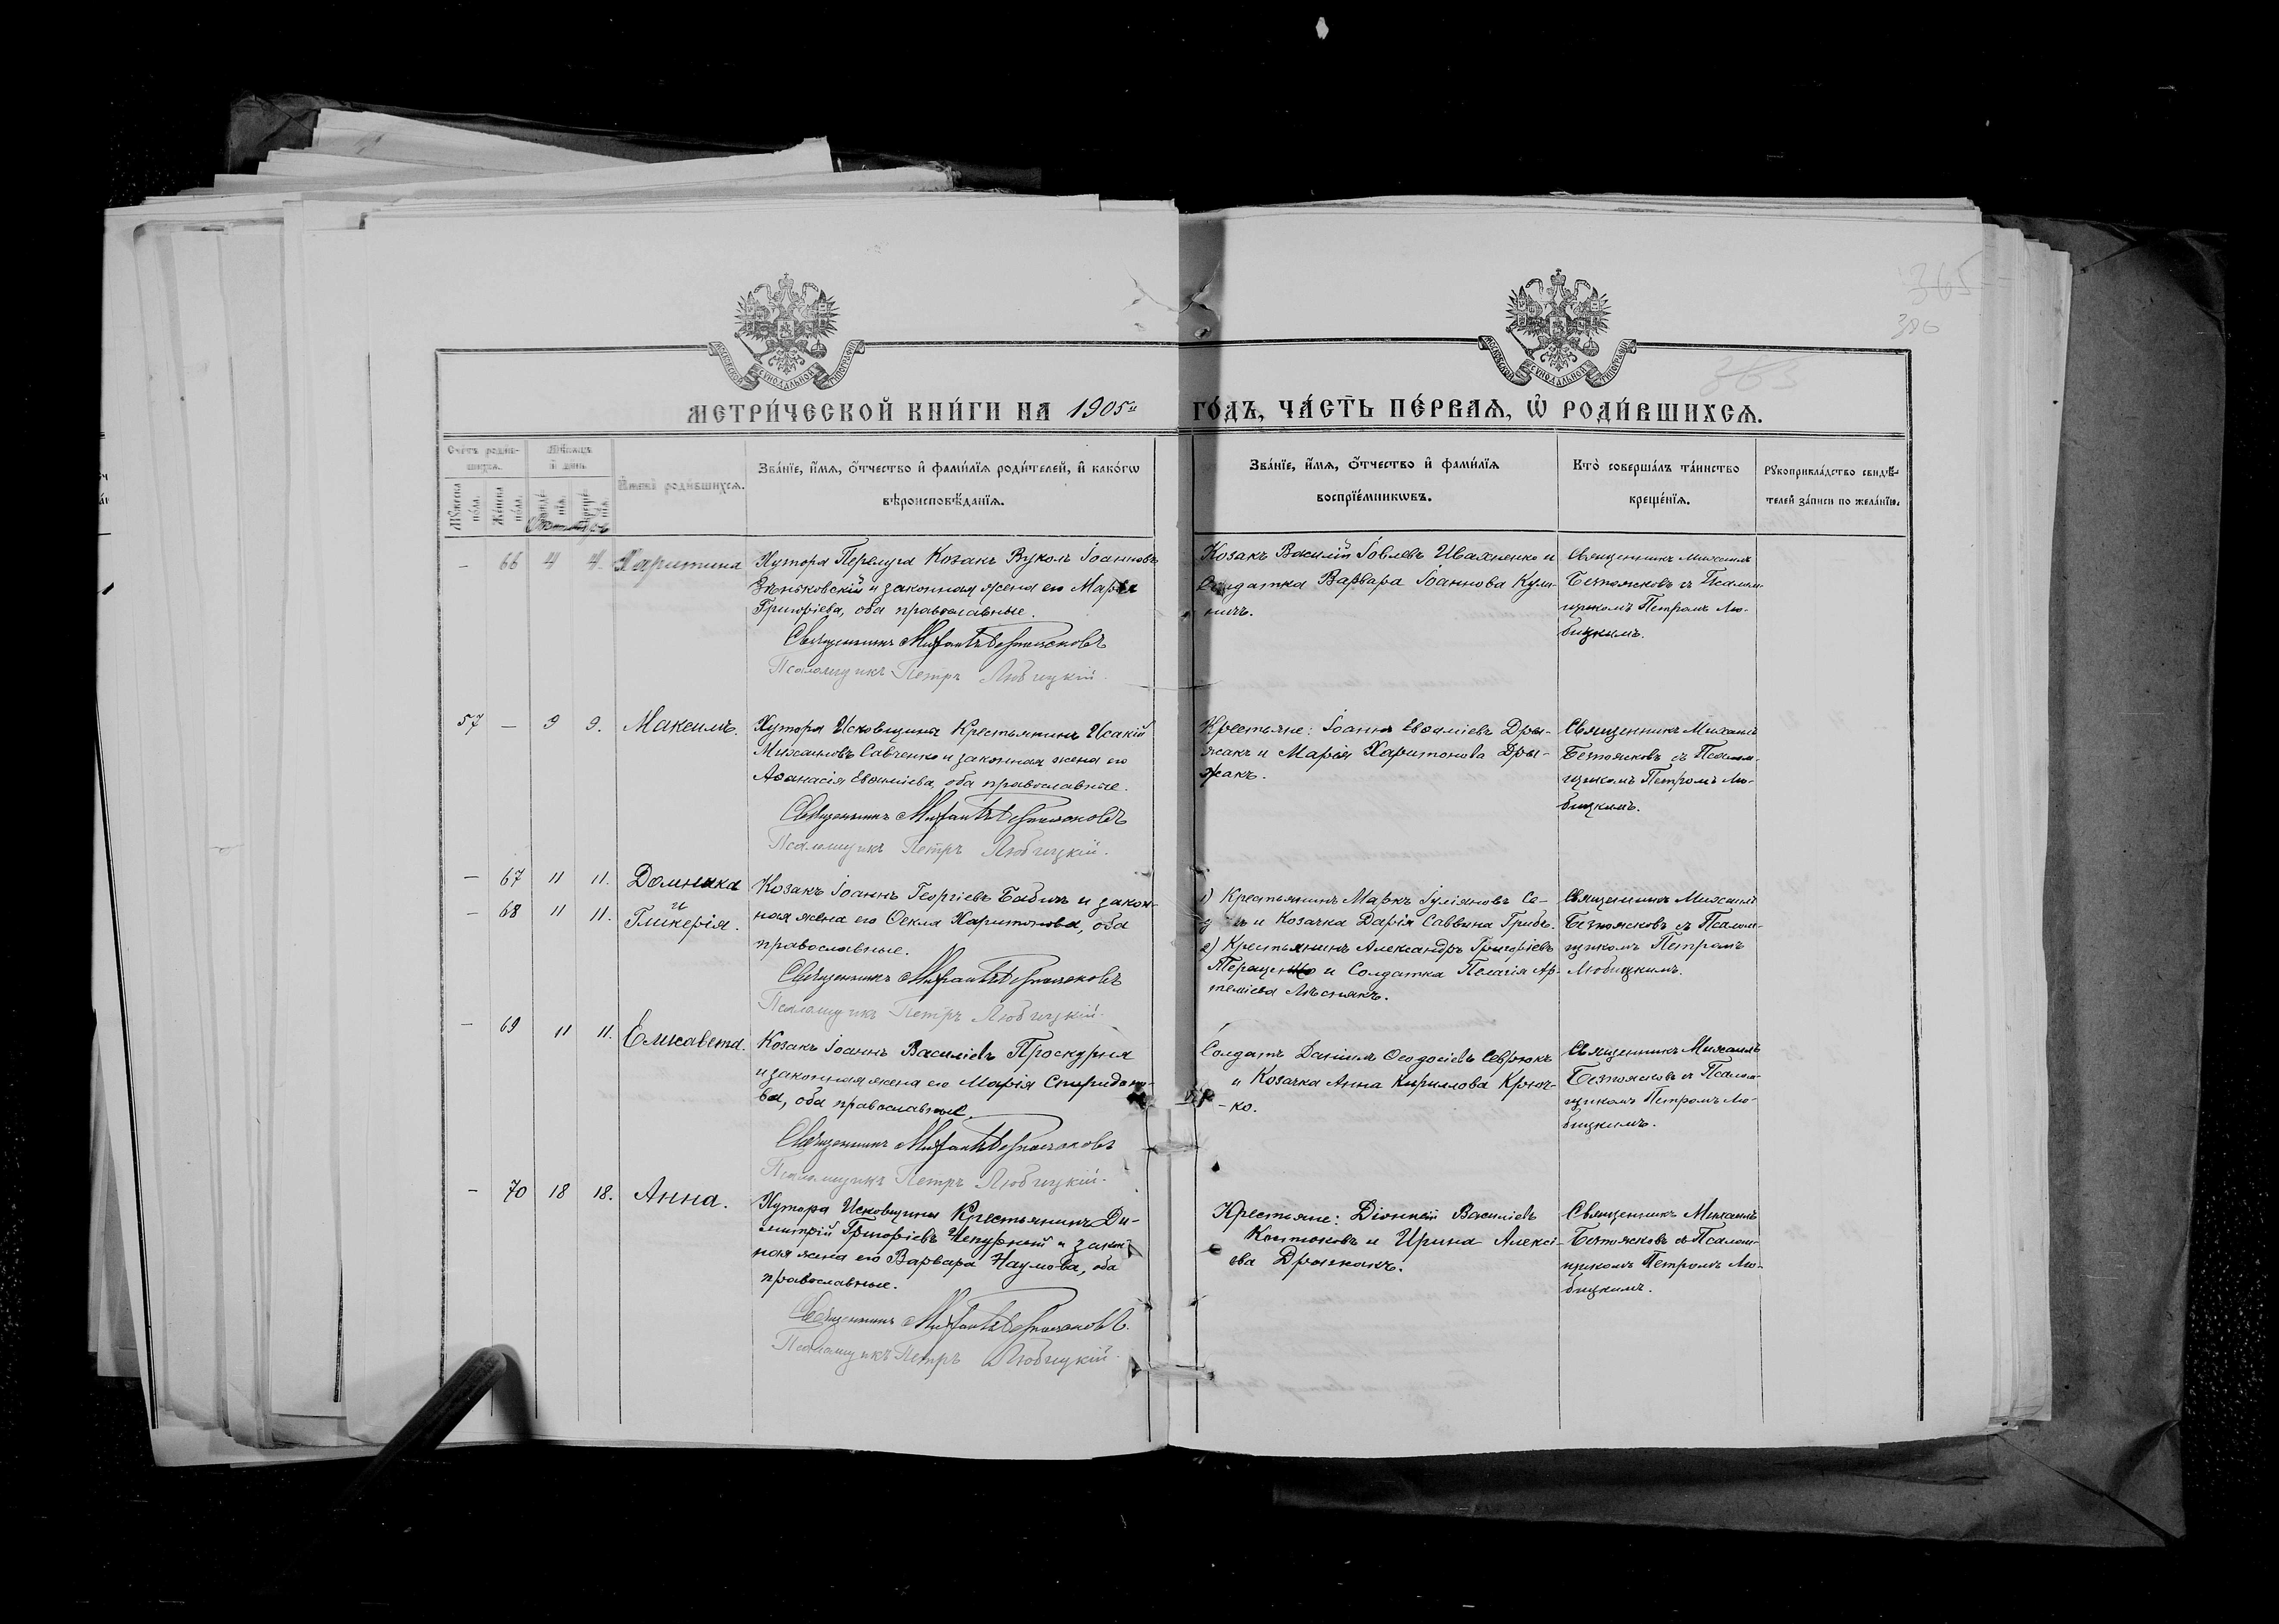 365
386
363
МОСКОВСКОЙ СѴНОДАЛЬНОЙ ТИПОГРАФІИ
МОСКОВСКОЙ СѴНОДАЛЬНОЙ ТИПОГРАФІИ
МЕТРИ́ЧЕСКОЙ КНИ́ГИ НА 1905й ГО́ДЪ, ЧА́СТЬ ПЕ́РВАѦ, Ѡ҆ РОДИ́ВШИХСѦ.
Сче́тъ роди́в-
шихсѧ.
Мѣ́сѧцъ
и҆ де́нь
И҆мена̀ роди́вшихсѧ.
Зва́нїе, и҆́мѧ, ѻ҆́тчество и҆ фами́лїѧ роди́телей, и҆ како́гѡ
вѣроисповѣ́данїѧ.
Зва́нїе, и҆́мѧ, ѻ҆́тчество и҆ фами́лїѧ
воспрїе́мникѡвъ.
Кто̀ соверша́лъ та́инство
креще́нїѧ.
Рꙋкоприкла́дство свидѣ́-
телей за́писи по жела́нїю.
Мꙋ́жеска
по́ла.
Же́нска
по́ла.
Октябрь
– 66 4 4. Харитина
Хутора Перелуга Козакъ Вуколъ Іоанновъ
Зѣньковскій и законная жена его Марія
Григоріева, оба православные.
Священникъ Михаилъ Безпоясковъ
Псаломщикъ Петръ Любицкій.
Козакъ Василій Іовлевъ Ивахненко и
Солдатка Варвара Іоаннова Кули-
ничъ.
Священникъ Михаилъ
Безпоясковъ съ Псалом-
щикомъ Петромъ Лю-
бицкимъ.
57 – 9 9. Максимъ.
Хутора Исковщина Крестьянинъ Исакій
Михаиловъ Савченко и законная жена его
Аѳанасія Евѳиміева, оба православные.
Священникъ Михаилъ Безпоясковъ
Псаломщикъ Петръ Любицкій.
Крестьяне: Іоаннъ Евѳиміевъ Дры-
жакъ и Марія Харитонова Дры-
жакъ.
Священникъ Михаилъ
Безпоясковъ съ Псалом-
щикомъ Петромъ Лю-
бицкимъ.
– 67 11 11. Домника
и
– 68 11 11. Гликерія.
Козакъ Іоаннъ Георгіевъ Бабичъ и закон-
ная жена его Ѳекла Харитонова, оба
православные.
Священникъ Михаилъ Безпоясковъ
Псаломщикъ Петръ Любицкій.
1) Крестьянинъ Маркъ Іуліановъ Се-
и Козачка Дарія Саввина Грибъ.
2) Крестьянинъ Александръ Григоріевъ
Терещенко и Солдатка Пелагія Ар-
теміева Лѣснякъ.
Священникъ Михаилъ
Безпоясковъ съ Псалом-
щикомъ Петромъ
Любицкимъ.
– 69 11 11. Елисавета.
Козакъ Іоаннъ Василіевъ Проскурня
и законная жена его Марія Спиридоно-
ва, оба православные.
Священникъ Михаилъ Безпоясковъ
Псаломщикъ Петръ Любицкій.
Солдатъ Даніилъ Ѳеодосіевъ Севрюкъ
и Козачка Анна Кириллова Крюч-
-ко.
Священникъ Михаилъ
Безпоясковъ съ Псалом-
щикомъ Петромъ Лю-
бицкимъ.
– 70 18 18. Анна.
Хутора Исковщины Крестьянинъ Ди-
митрій Григоріевъ Чепурный и закон-
ная жена его Варвара Наумова, оба
православные.
Священникъ Михаилъ Безпоясковъ.
Псаломщикъ Петръ Любицкій.
Крестьяне: Діонисій Василіевъ
и Ирина Алексі-
ева
Священникъ Михаилъ
Безпоясковъ съ Псалом-
щикомъ Петромъ Лю-
бицкимъ.